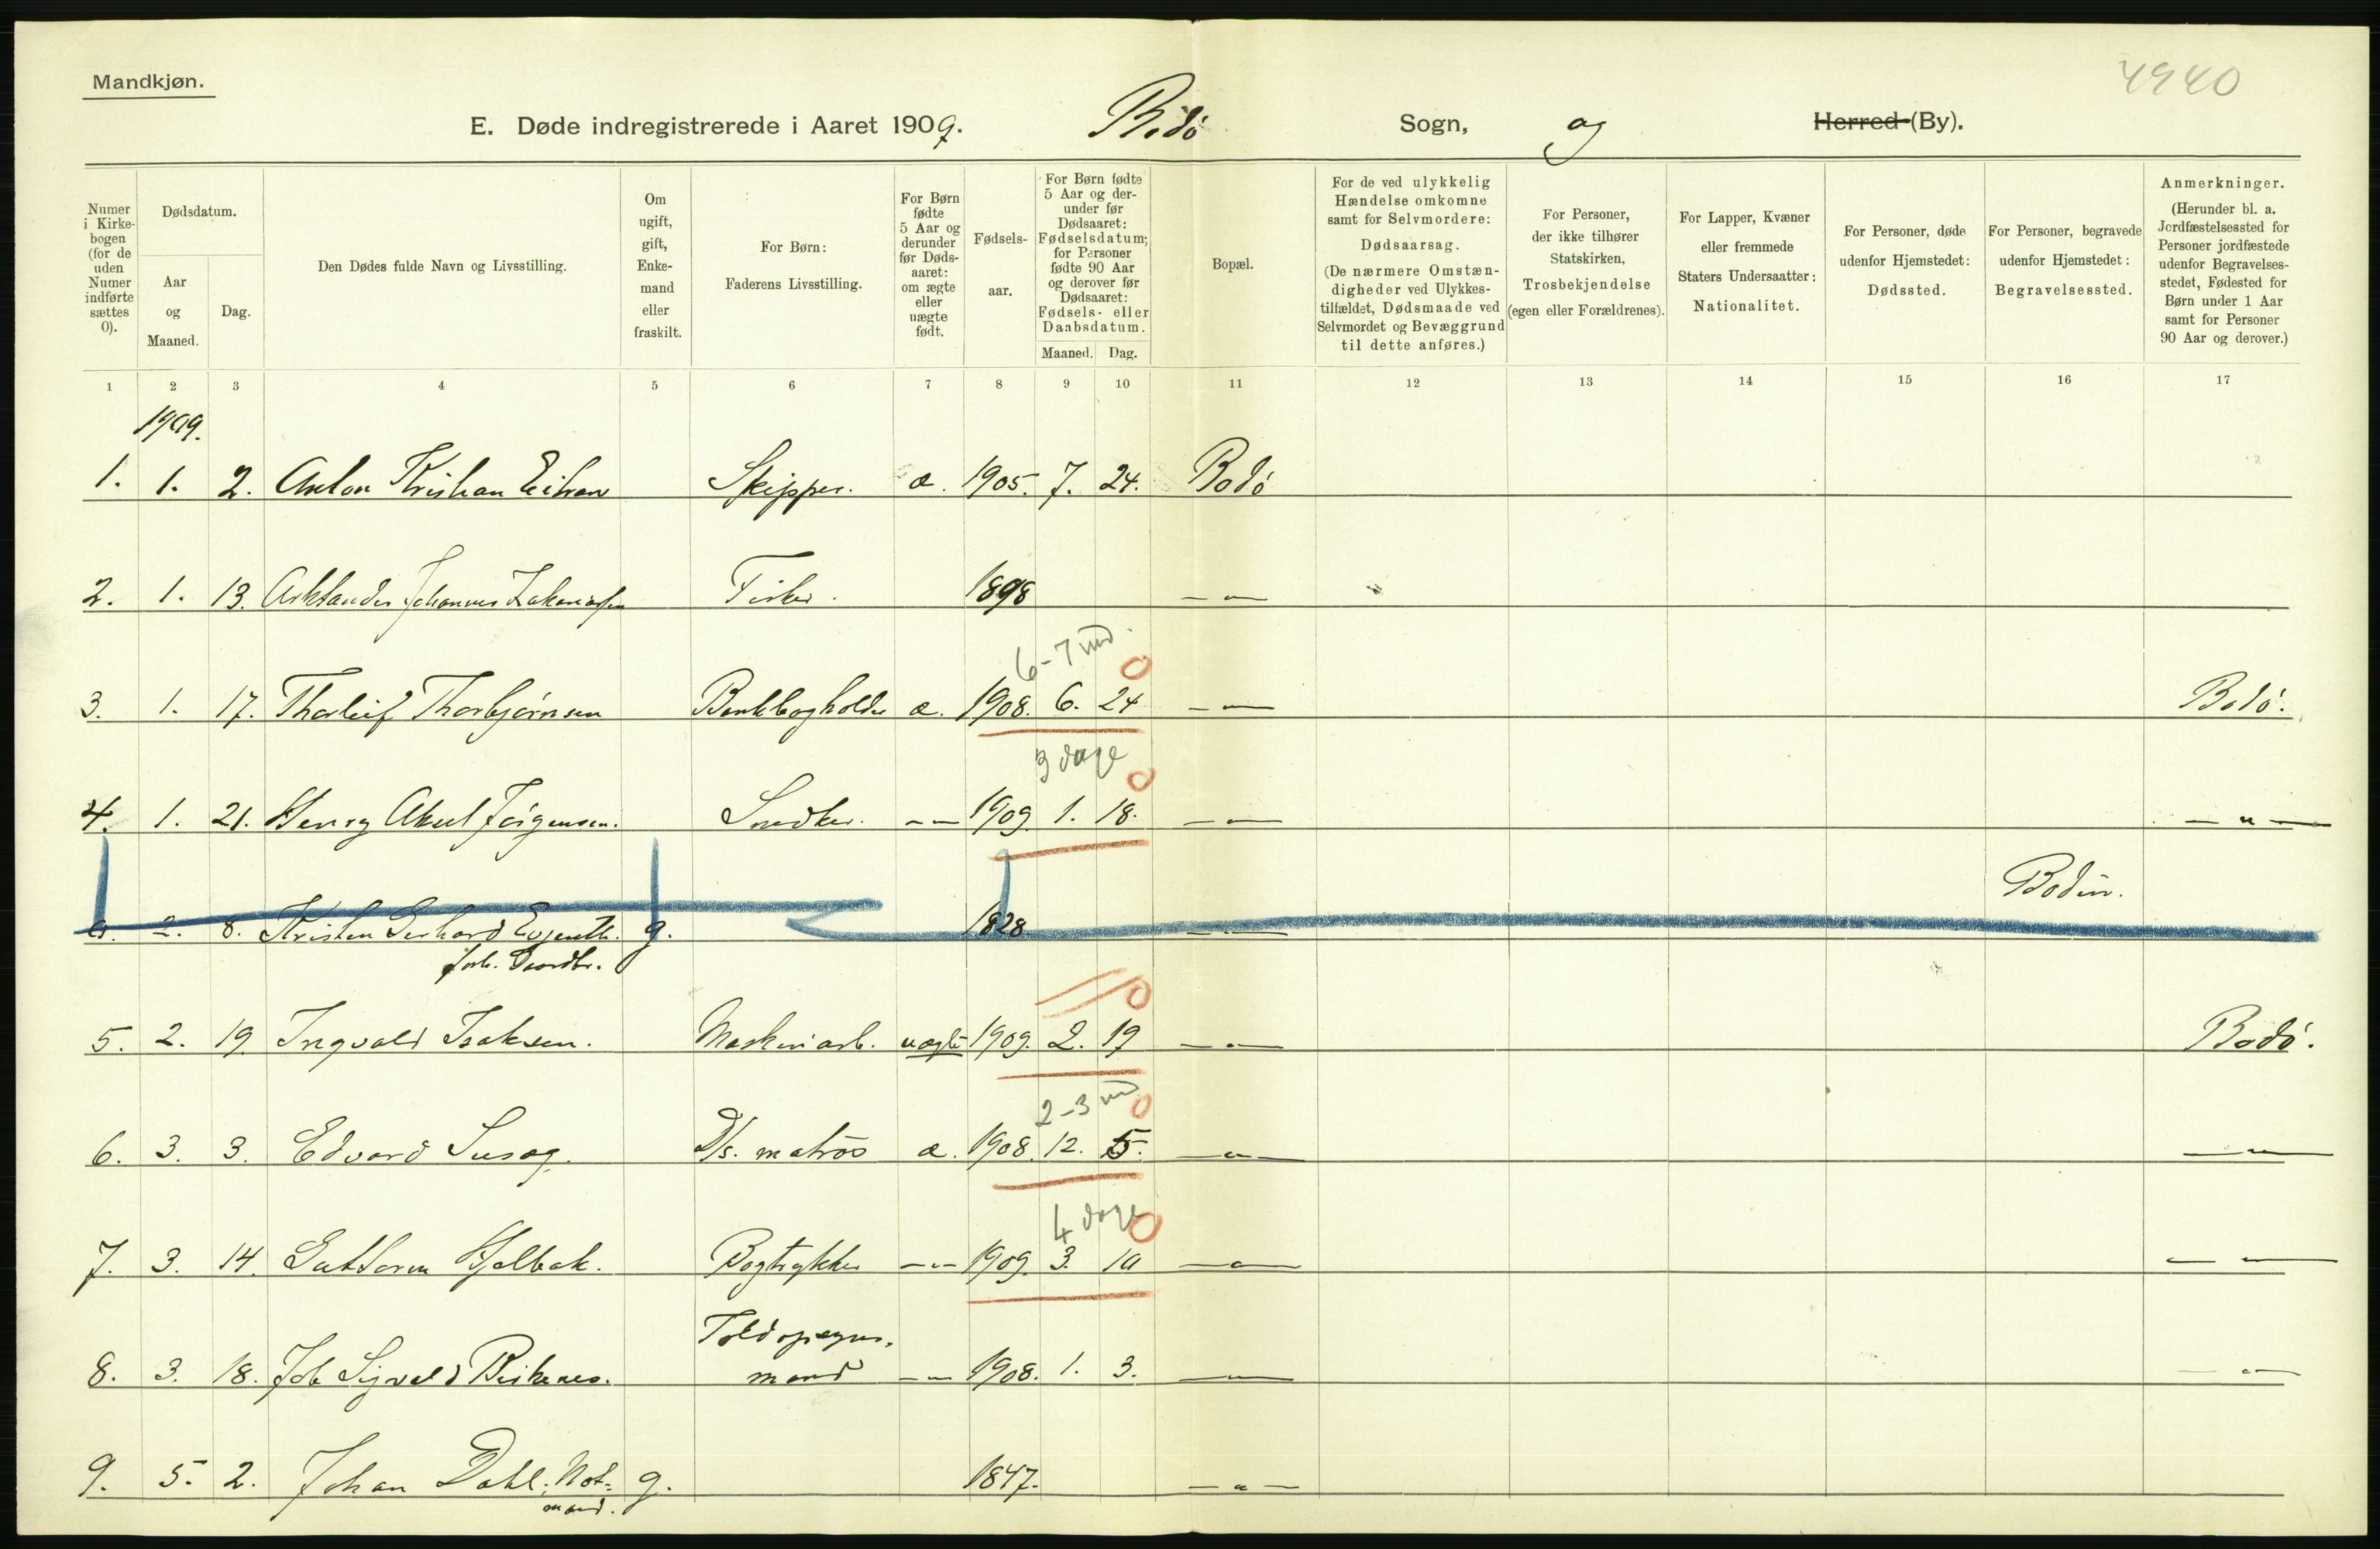 Mandkjøn.
4940
E. Døde indregistrerede i Aaret 1909. Bodø Sogn, og Herred (By).
Numer i Kirke-bogen (for de uden Numer indførte sættes 0).
Dødsdatum.
Aar og Maaned.
Dag.
Den Dødes fulde Navn og Livsstilling.
Om ugift, gift, Enke-mand eller fraskilt.
For Børn:
Faderens Livsstilling.
For Børn fødte 5 Aar og derunder før Døds-aaret: om ægte eller uægte født.
Fødsels-aar.
For Børn fødte 5 Aar og der-under før Dødsaaret: Fødselsdatum; for Personer fødte 90 Aar og derover før Dødsaaret: Fødsels- eller Daabsdatum.
Maaned. Dag.
Bopæl.
For de ved ulykkelig Hændelse omkomne samt for Selvmordere:
Dødsaarsag.
(De nærmere Omstæn-digheder ved Ulykkes-tilfældet, Dødsmaade ved Selvmordet og Bevæggrund til dette anføres.)
For Personer, der ikke tilhører Statskirken,
Trosbekjendelse
(egen eller Forældrenes).
For Lapper, Kvæner eller fremmede Staters Undersaatter:
Nationalitet.
For Personer, døde udenfor Hjemstedet:
Dødssted.
For Personer, begravede udenfor Hjemstedet:
Begravelsessted.
Anmerkninger.
(Herunder bl. a. Jordfæstelsessted for Personer jordfæstede udenfor Begravelses-stedet, Fødested for Børn under 1 Aar samt for Personer 90 Aar og derover.)
1 2 3 4 5 6 7 8 9 10 11 12 13 14 15 16 17
1909.
1. 1. 2. Anton Kristian Skipper. æ. 1905. 7. 24. Bodø
2. 1. 13. Johannes Zakariassen Fisker. 1898 — " —
6-7 md. 0
3. 1. 17. Thorleif Thorbjørnsen Bankbogholder æ. 1908. 6. 24 — " — Bodø.
3 dage 0
4. 1. 21. Henry Aksel Jørgensen. Snedker. — " — 1909. 1. 18. — " — — " —
Bodin.
2. 8. Kristen Gerhard g. 1828 — " —
forh. Gaardbr.
0
5. 2. 19. Ingvald Isaksen. Maskinarb. uægte 1909. 2. 19 — " — Bodø.
2-3 md 0
6. 3. 3. Edvard D/s. matros æ. 1908. 12. 15. — " — — " —
4 dage 0
7. 3. 14. Guttorm Hjelbak. Bogtrykker — " — 1909. 3. 10 — " — — " —
Toldopsyns-
8. 3. 18. Sigvald mand — " — 1908. 1. 3. — " — — " —
9. 5. 2. Johan Dahl, Not- g. 1847. — " —
mand.